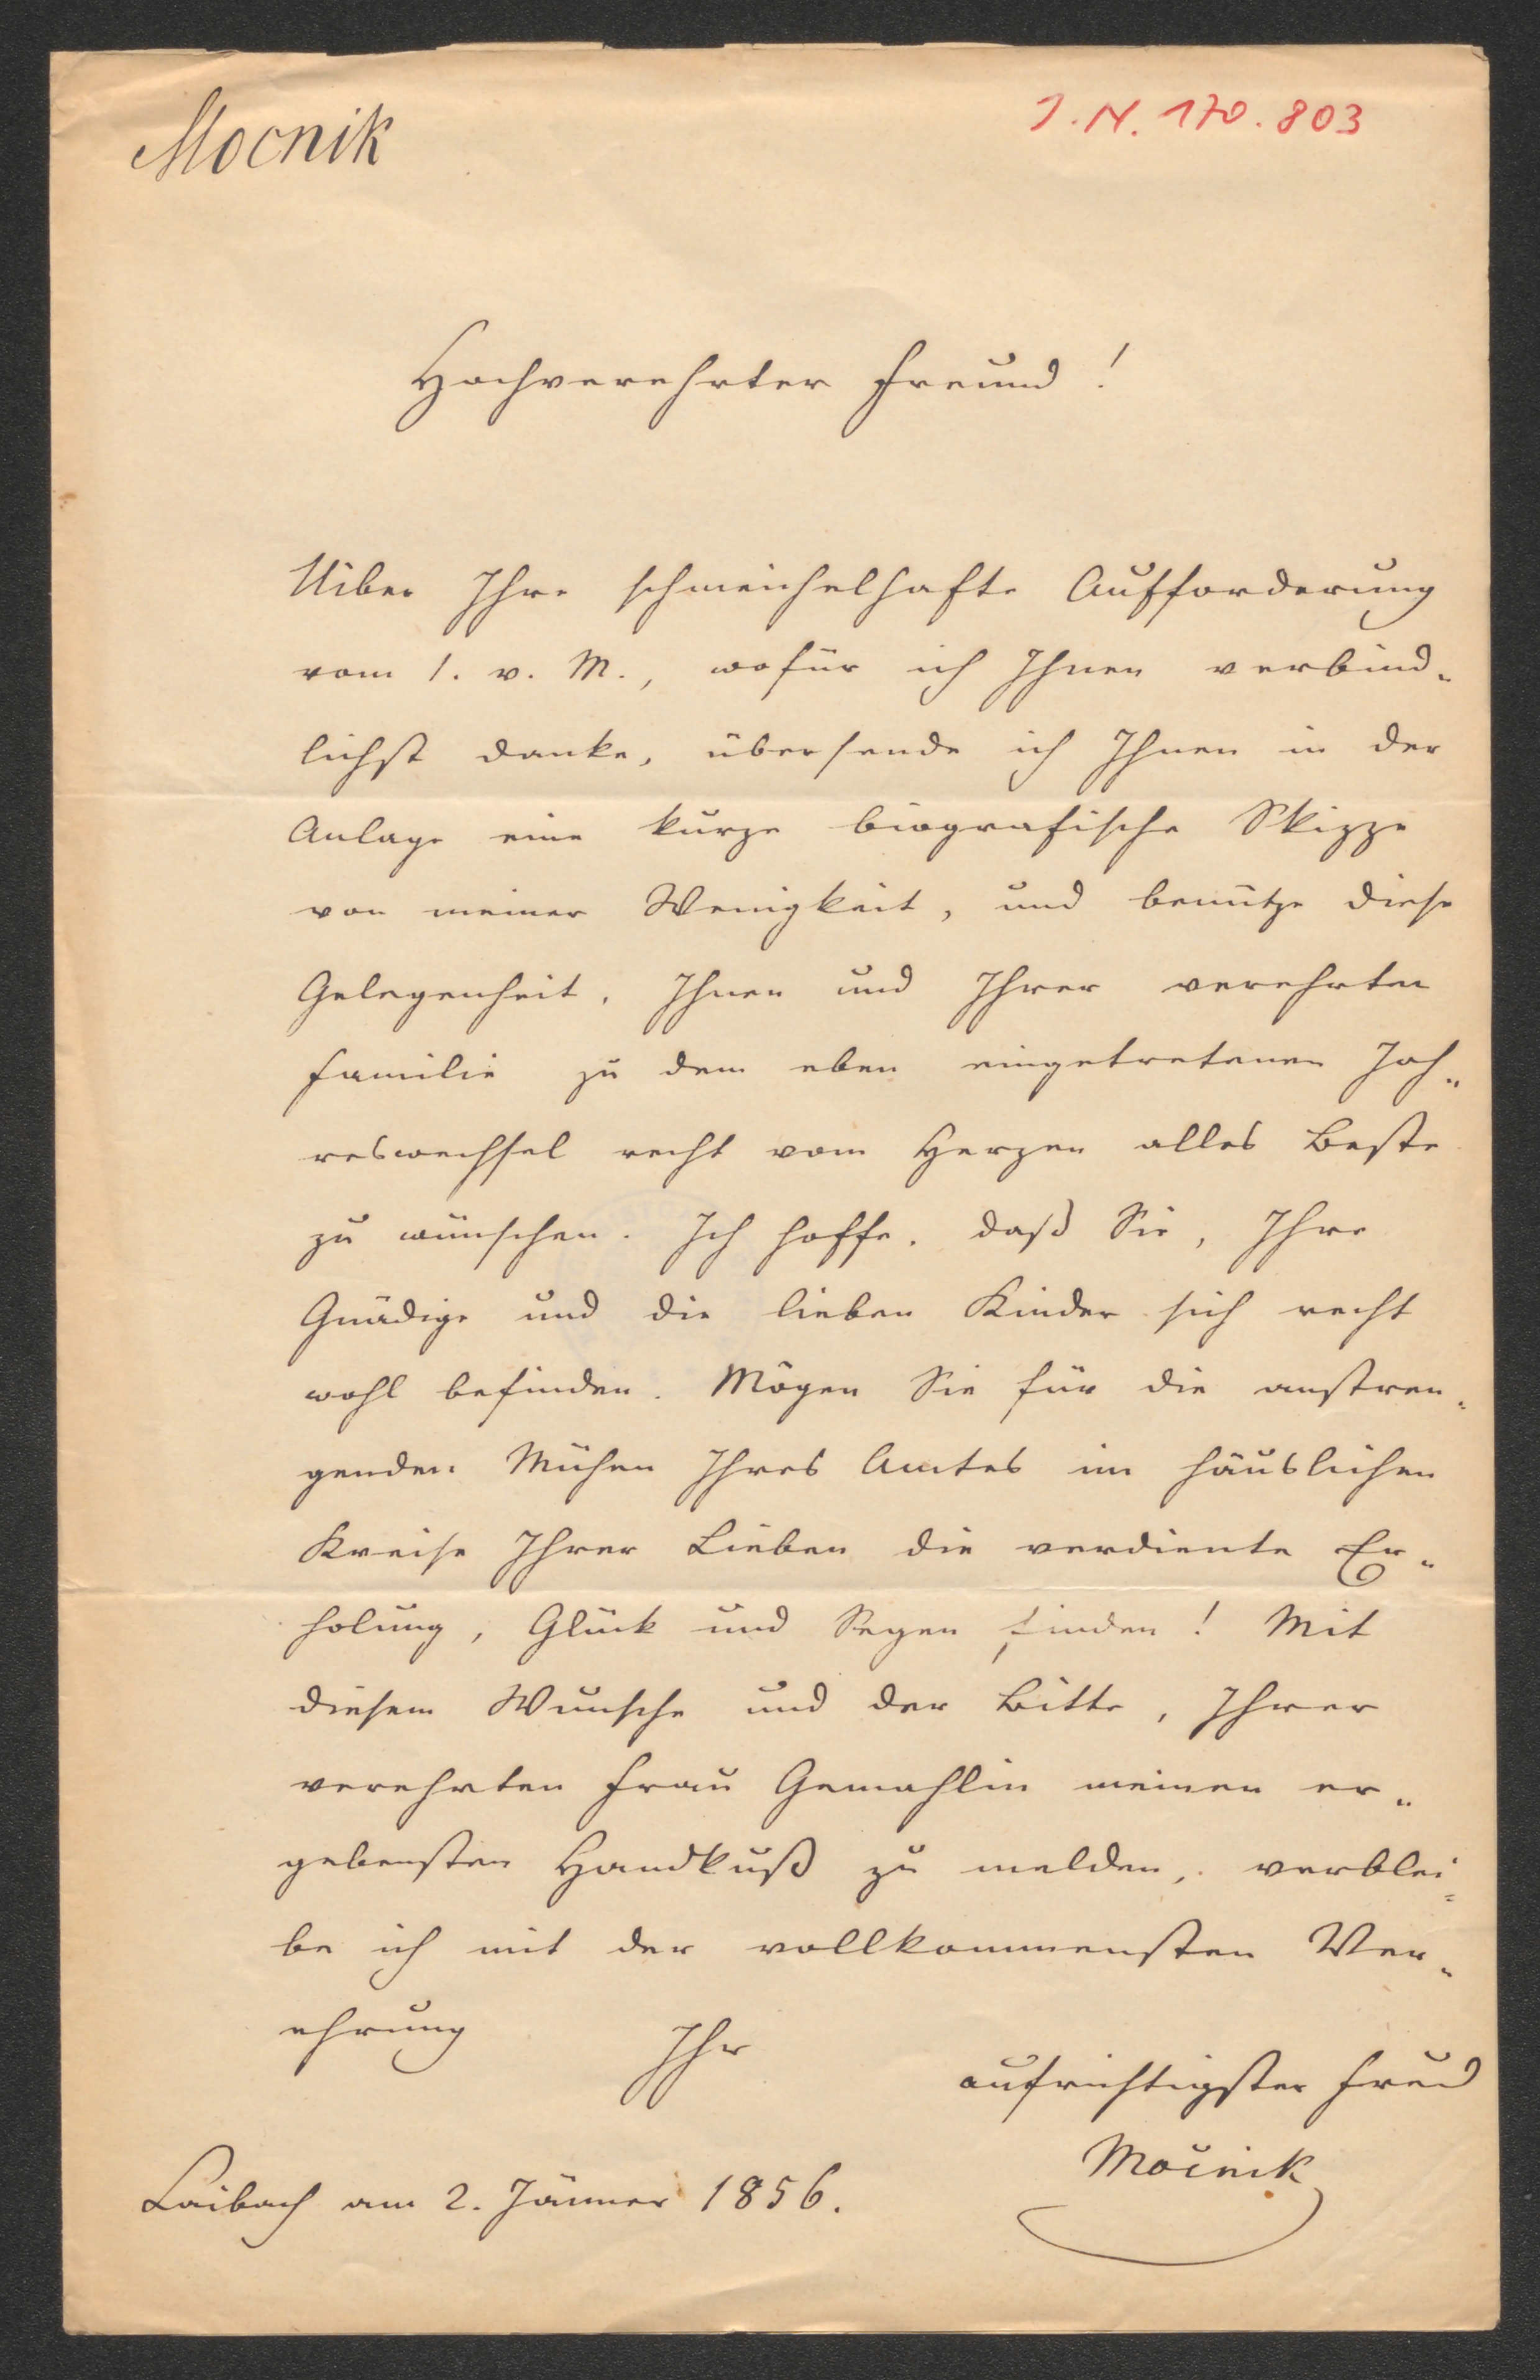 Mocnik
J. N. 170.803
Hochverehrter Freund!
Uiber Ihre schmeichelhafte Aufforderung
vom 1. v. M., wofür ich Ihnen verbind-
lichst danke, übersende ich Ihnen in der
Anlage eine kurze biografische Skizze
von meiner Wenigkeit, und benütze diese
Gelegenheit, Ihnen und Ihrer verehrten
Familie zu dem eben eingetretenen Jah-
reswechsel recht vom Herzen alles Beste
zu wünschen. Ich hoffe, daß Sie, Ihre
Gnädige und die lieben Kinder sich recht
wohl befinden. Mögen Sie für die anstren-
genden Mühen Ihres Amtes im häuslichen
Kreise Ihrer Lieben die verdiente Er-
holung, Glück und Segen finden! Mit
diesem Wunsche und der Bitte, Ihrer
verehrten Frau Gemahlin meinen er-
gebensten Handkuß zu melden, verblei-
be ich mit der vollkommensten Ver-
ehrung
Ihr
aufrichtigster Freund
Močnik
Laibach am 2. Jänner 1856.